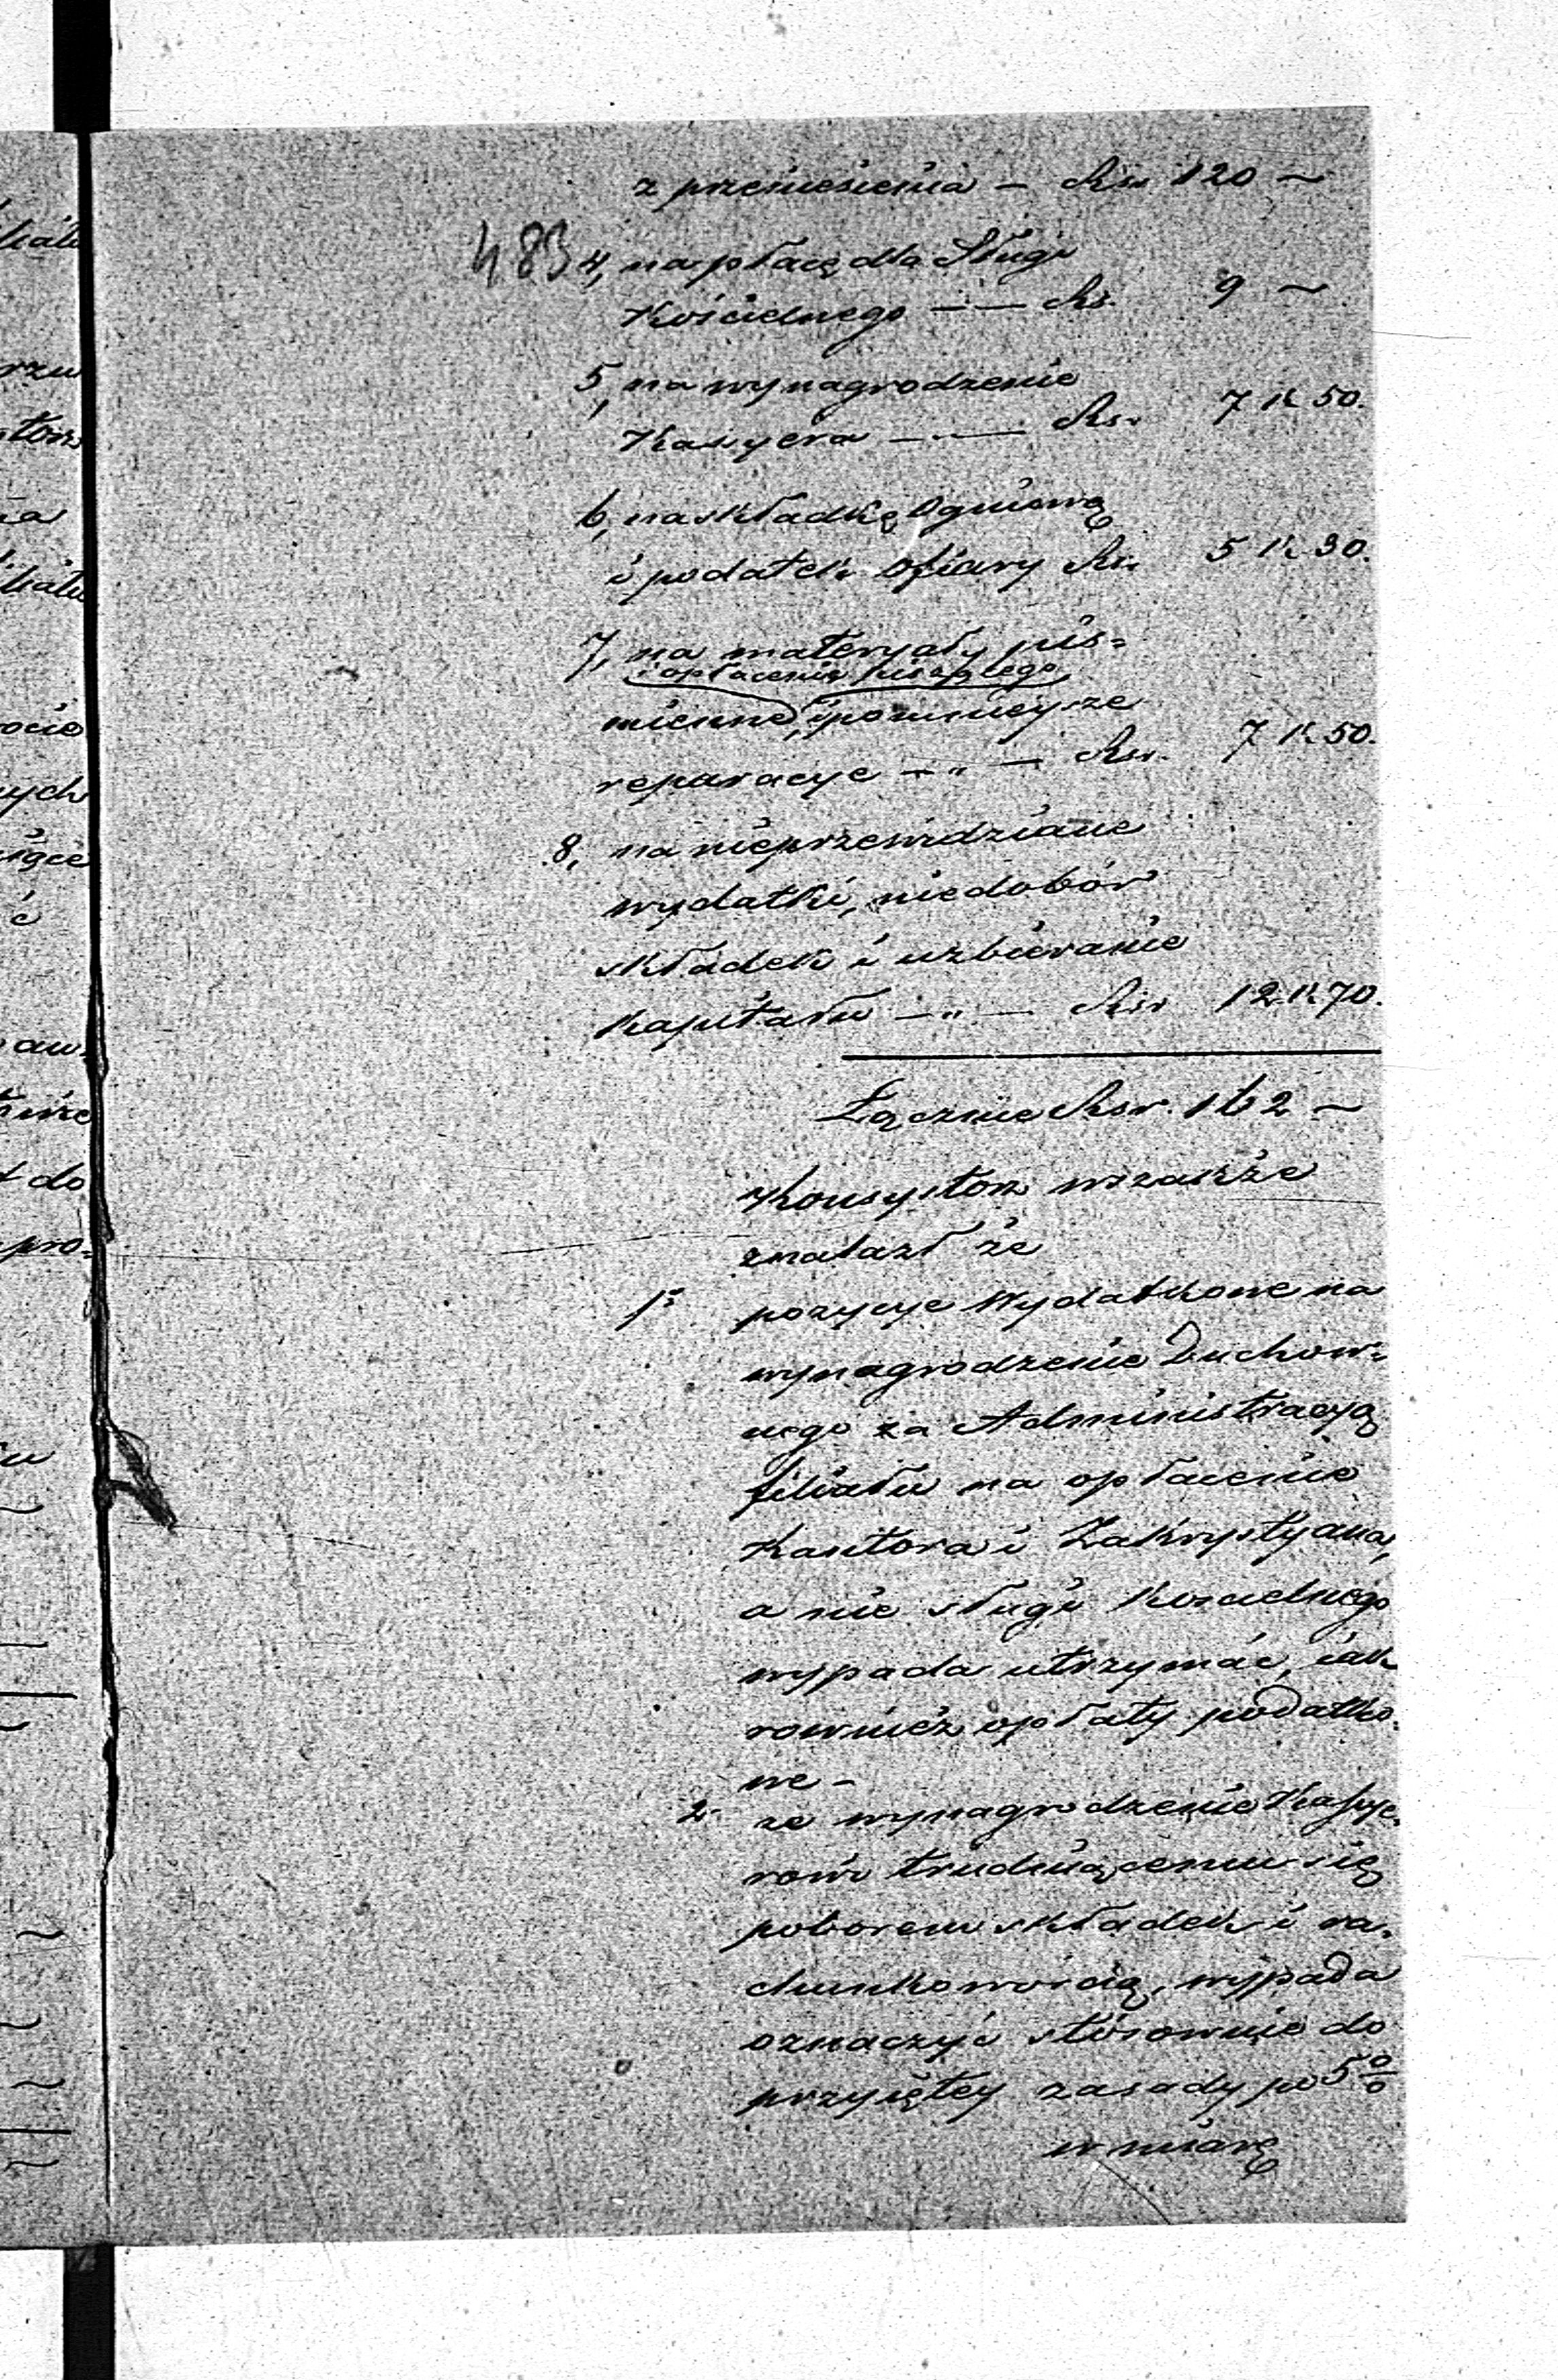 z przeniesienia – Rsr 120 ~
483
4, na płacę dla Sługi
Kościelnego –– Rs. 9 ~
5, na wynagrodzenie
Kassyera –– Rsr 7 K 50.
6, na składkę Ogniową
i podatek ofiary Rsr 5 K 30.
7, na materyały piś=
i opłacenie piszącego
mienne, i pomniejsze
reparacye –"– Rsr. 7 K 50.
8, na nieprzewidziane
wydatki, niedobór
składek i uzbieranie
Kapitału –"– Rsr 12 K 70.
Łącznie Rsr. 162 ~
Konsystorz wszakże
znalazł że
1° pozycye Wydatkowe na
wynagrodzenie Duchow=
nego za Administracyą
filiału na opłacenie
Kantora i Zakrystyana,
a nie sługi Koscielnego
wypada utrzymać, iak
rownież opłaty podatko=
we –
2. ze wynagrodzenie Kassye=
rowi trudniącemu się
poborem składek i ra=
chunkowością, wypada
oznaczyć stósownie do
przyiętey zasady po 5%
w miarę